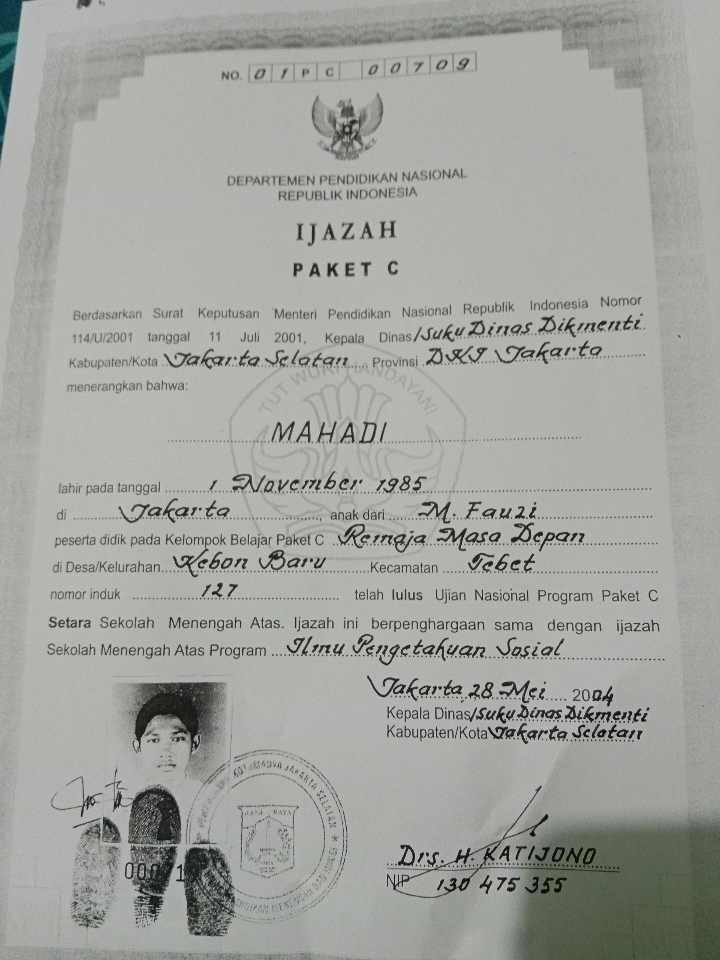 NO. 01PC 00709
DEPARTEMEN PENDIDIKAN NASIONAL
REPUBLIK INDONESIA
IJAZAH
PAKET C
Berdasarkan Surat Keputusan Menteri Pendidikan Nasional Republik Indonesia Nomor
114/U/2001 tanggal 11 Juli 2001, Kepala Dinas/Suku Dinas Dikmenti
Kabupaten/Kota Jakarta Selatan Provinsi DKI Jakarta
menerangkan bahwa:
TUT WURI HANDAYANI
MAHADI
lahir pada tanggal 1 November 1985
di Jakarta, anak dari M. Fauzi
peserta didik pada Kelompok Belajar Paket C Remaja Masa Depan
di Desa/Kelurahan Kebon Baru Kecamatan Tebet
nomor induk 127 telah lulus Ujian Nasional Program Paket C
Setara Sekolah Menengah Atas. Ijazah ini berpenghargaan sama dengan ijazah
Sekolah Menengah Atas Program Ilmu Pengetahuan Sosial
Jakarta, 28 Mei 2004
Kepala Dinas/Suku Dinas Dikmenti
Kabupaten/Kota Jakarta Selatan
KOTAMADYA JAKARTA SELATAN
JAYA RAYA
Drs. H. KATIJONO
NIP 130 475 355